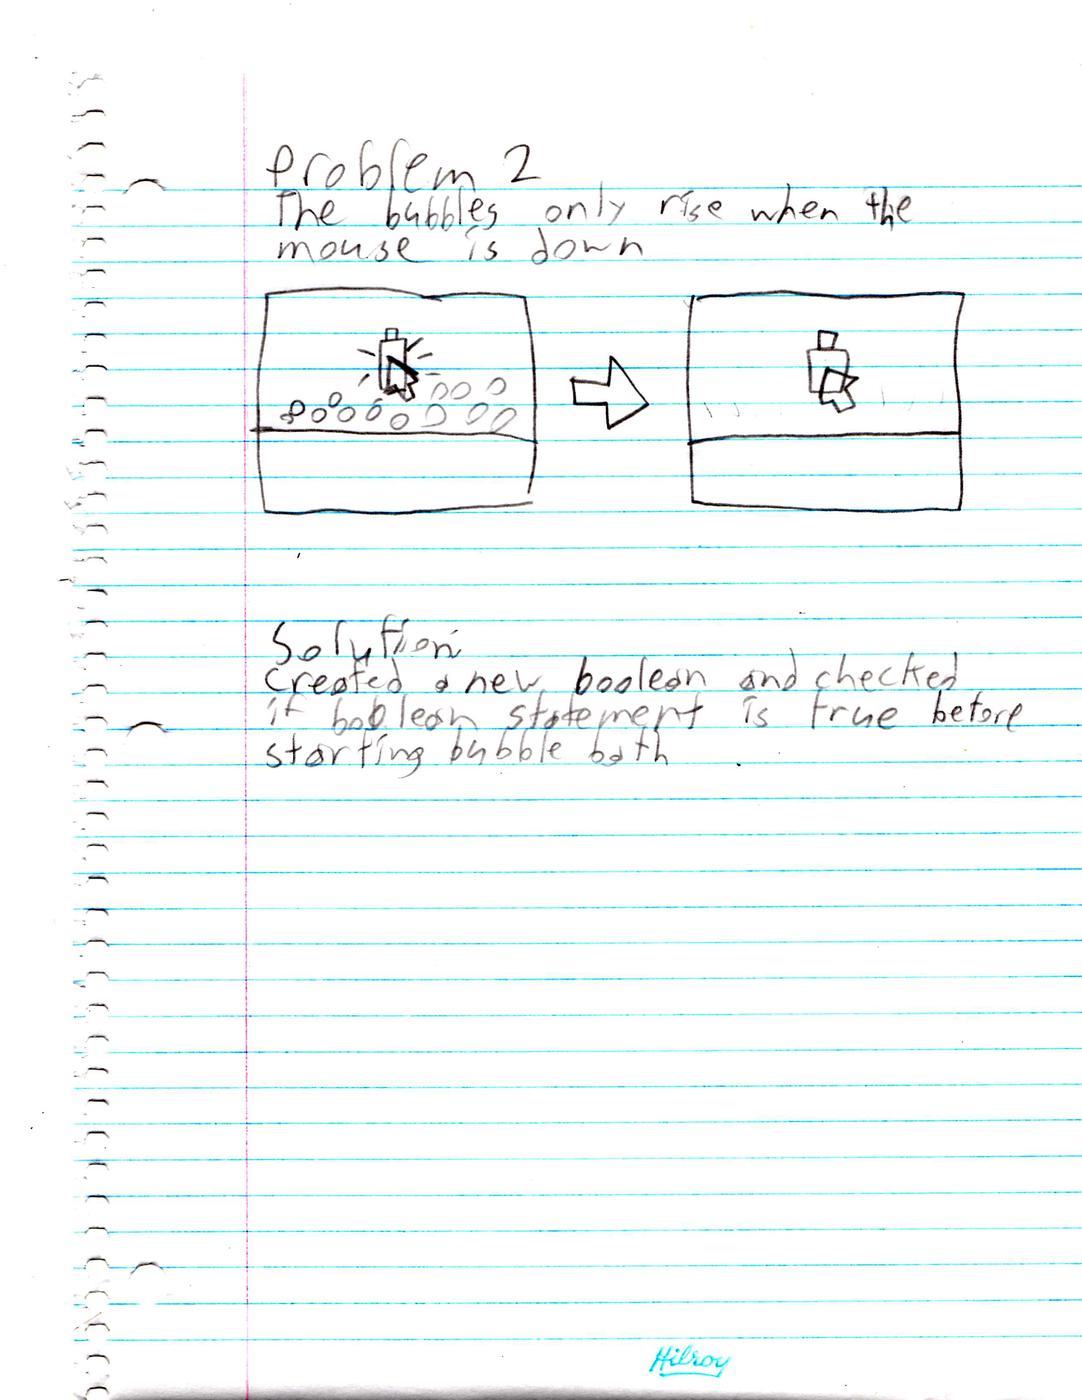 Problem 2
The bubbles only rise when the
mouse is down
Solution
Created a new boolean and checked
if boolean statement is true before
starting bubble bath
Hilroy